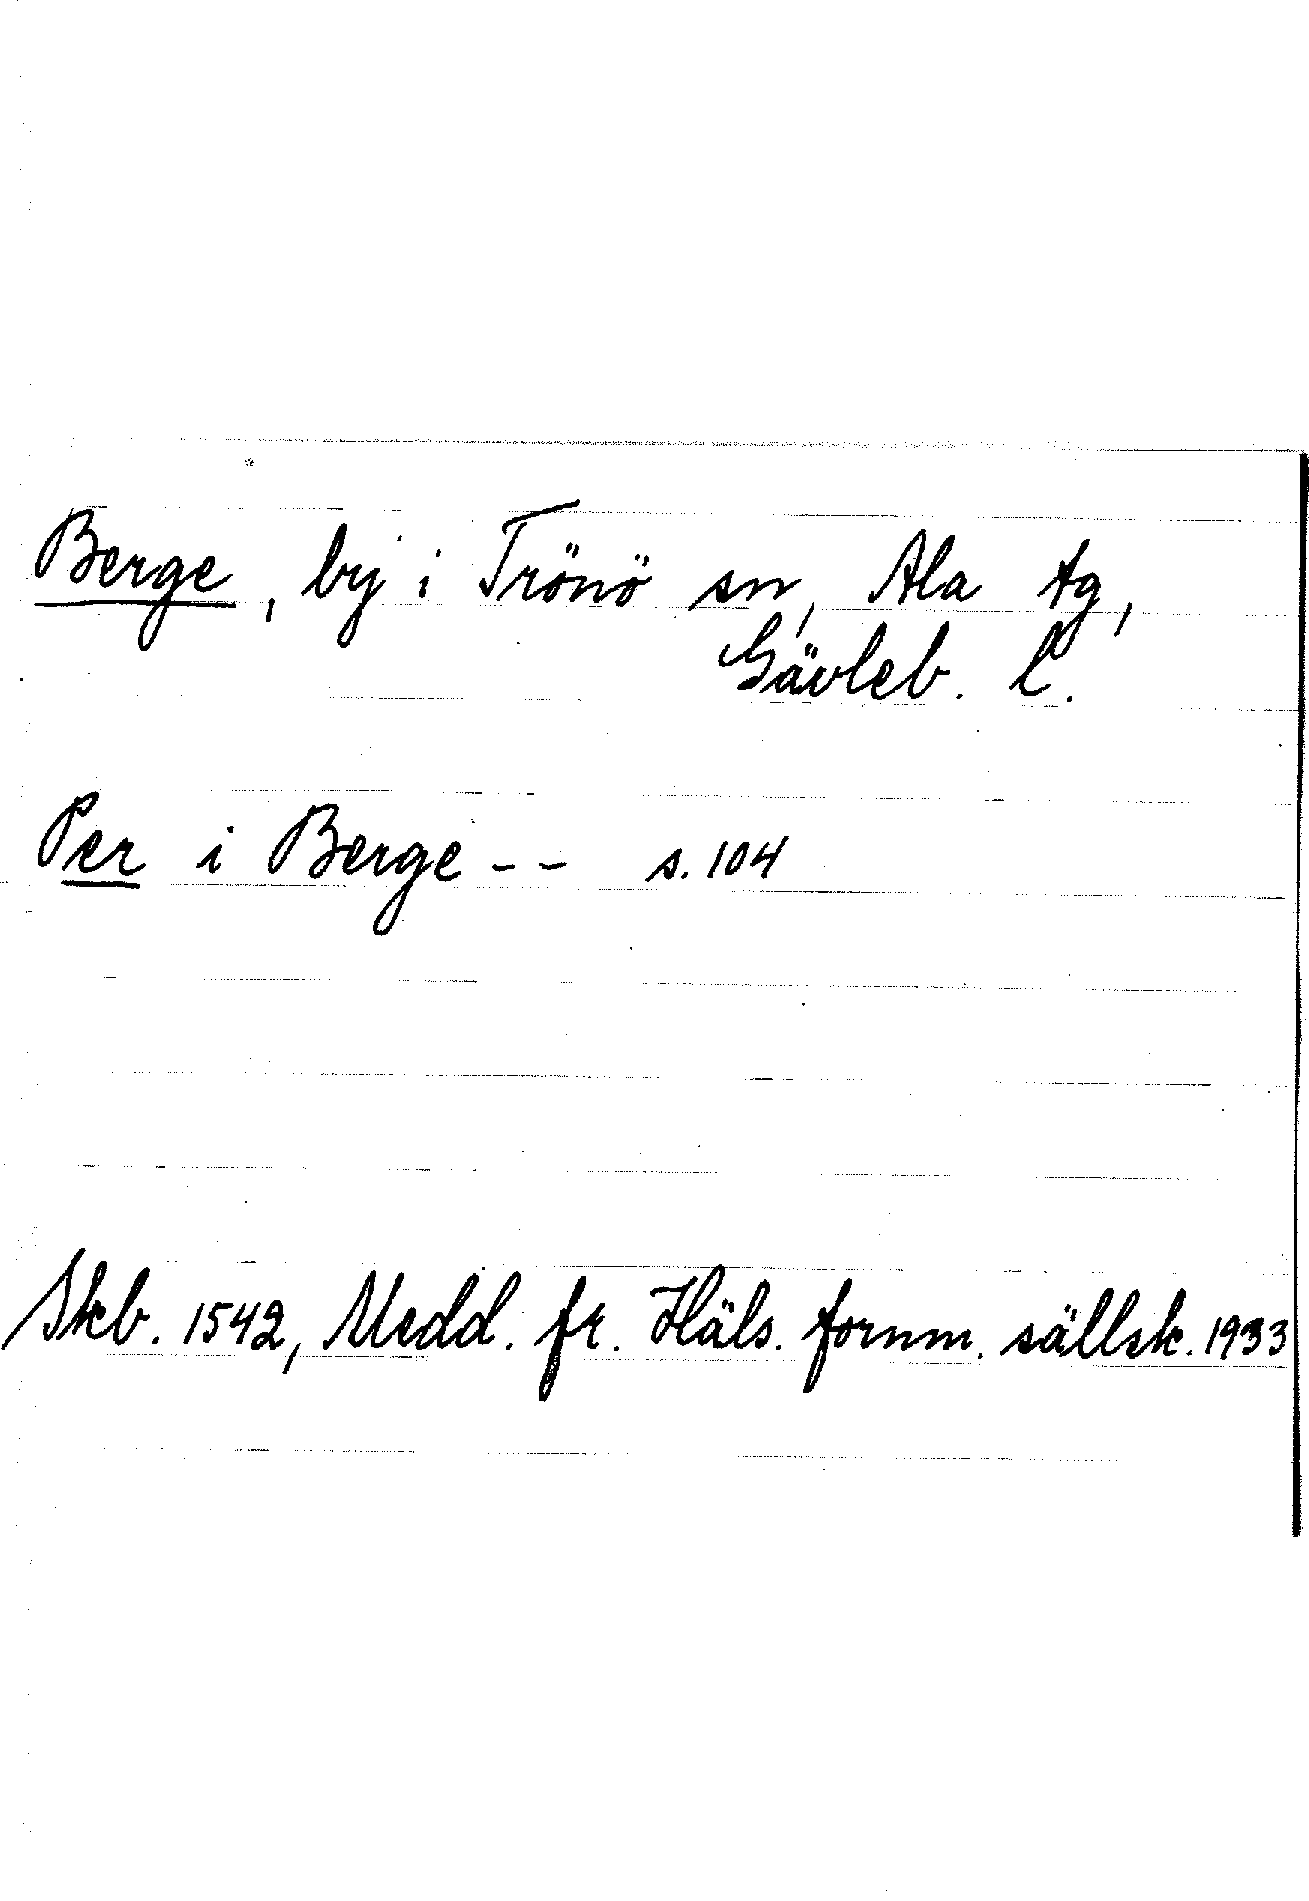 Berge, by i Trönö sn, Ala tg,
Gävleb. l.
Per i Berge -- s. 104
Skb. 1542, Medd. fr. Häls. fornm. sällsk. 1933